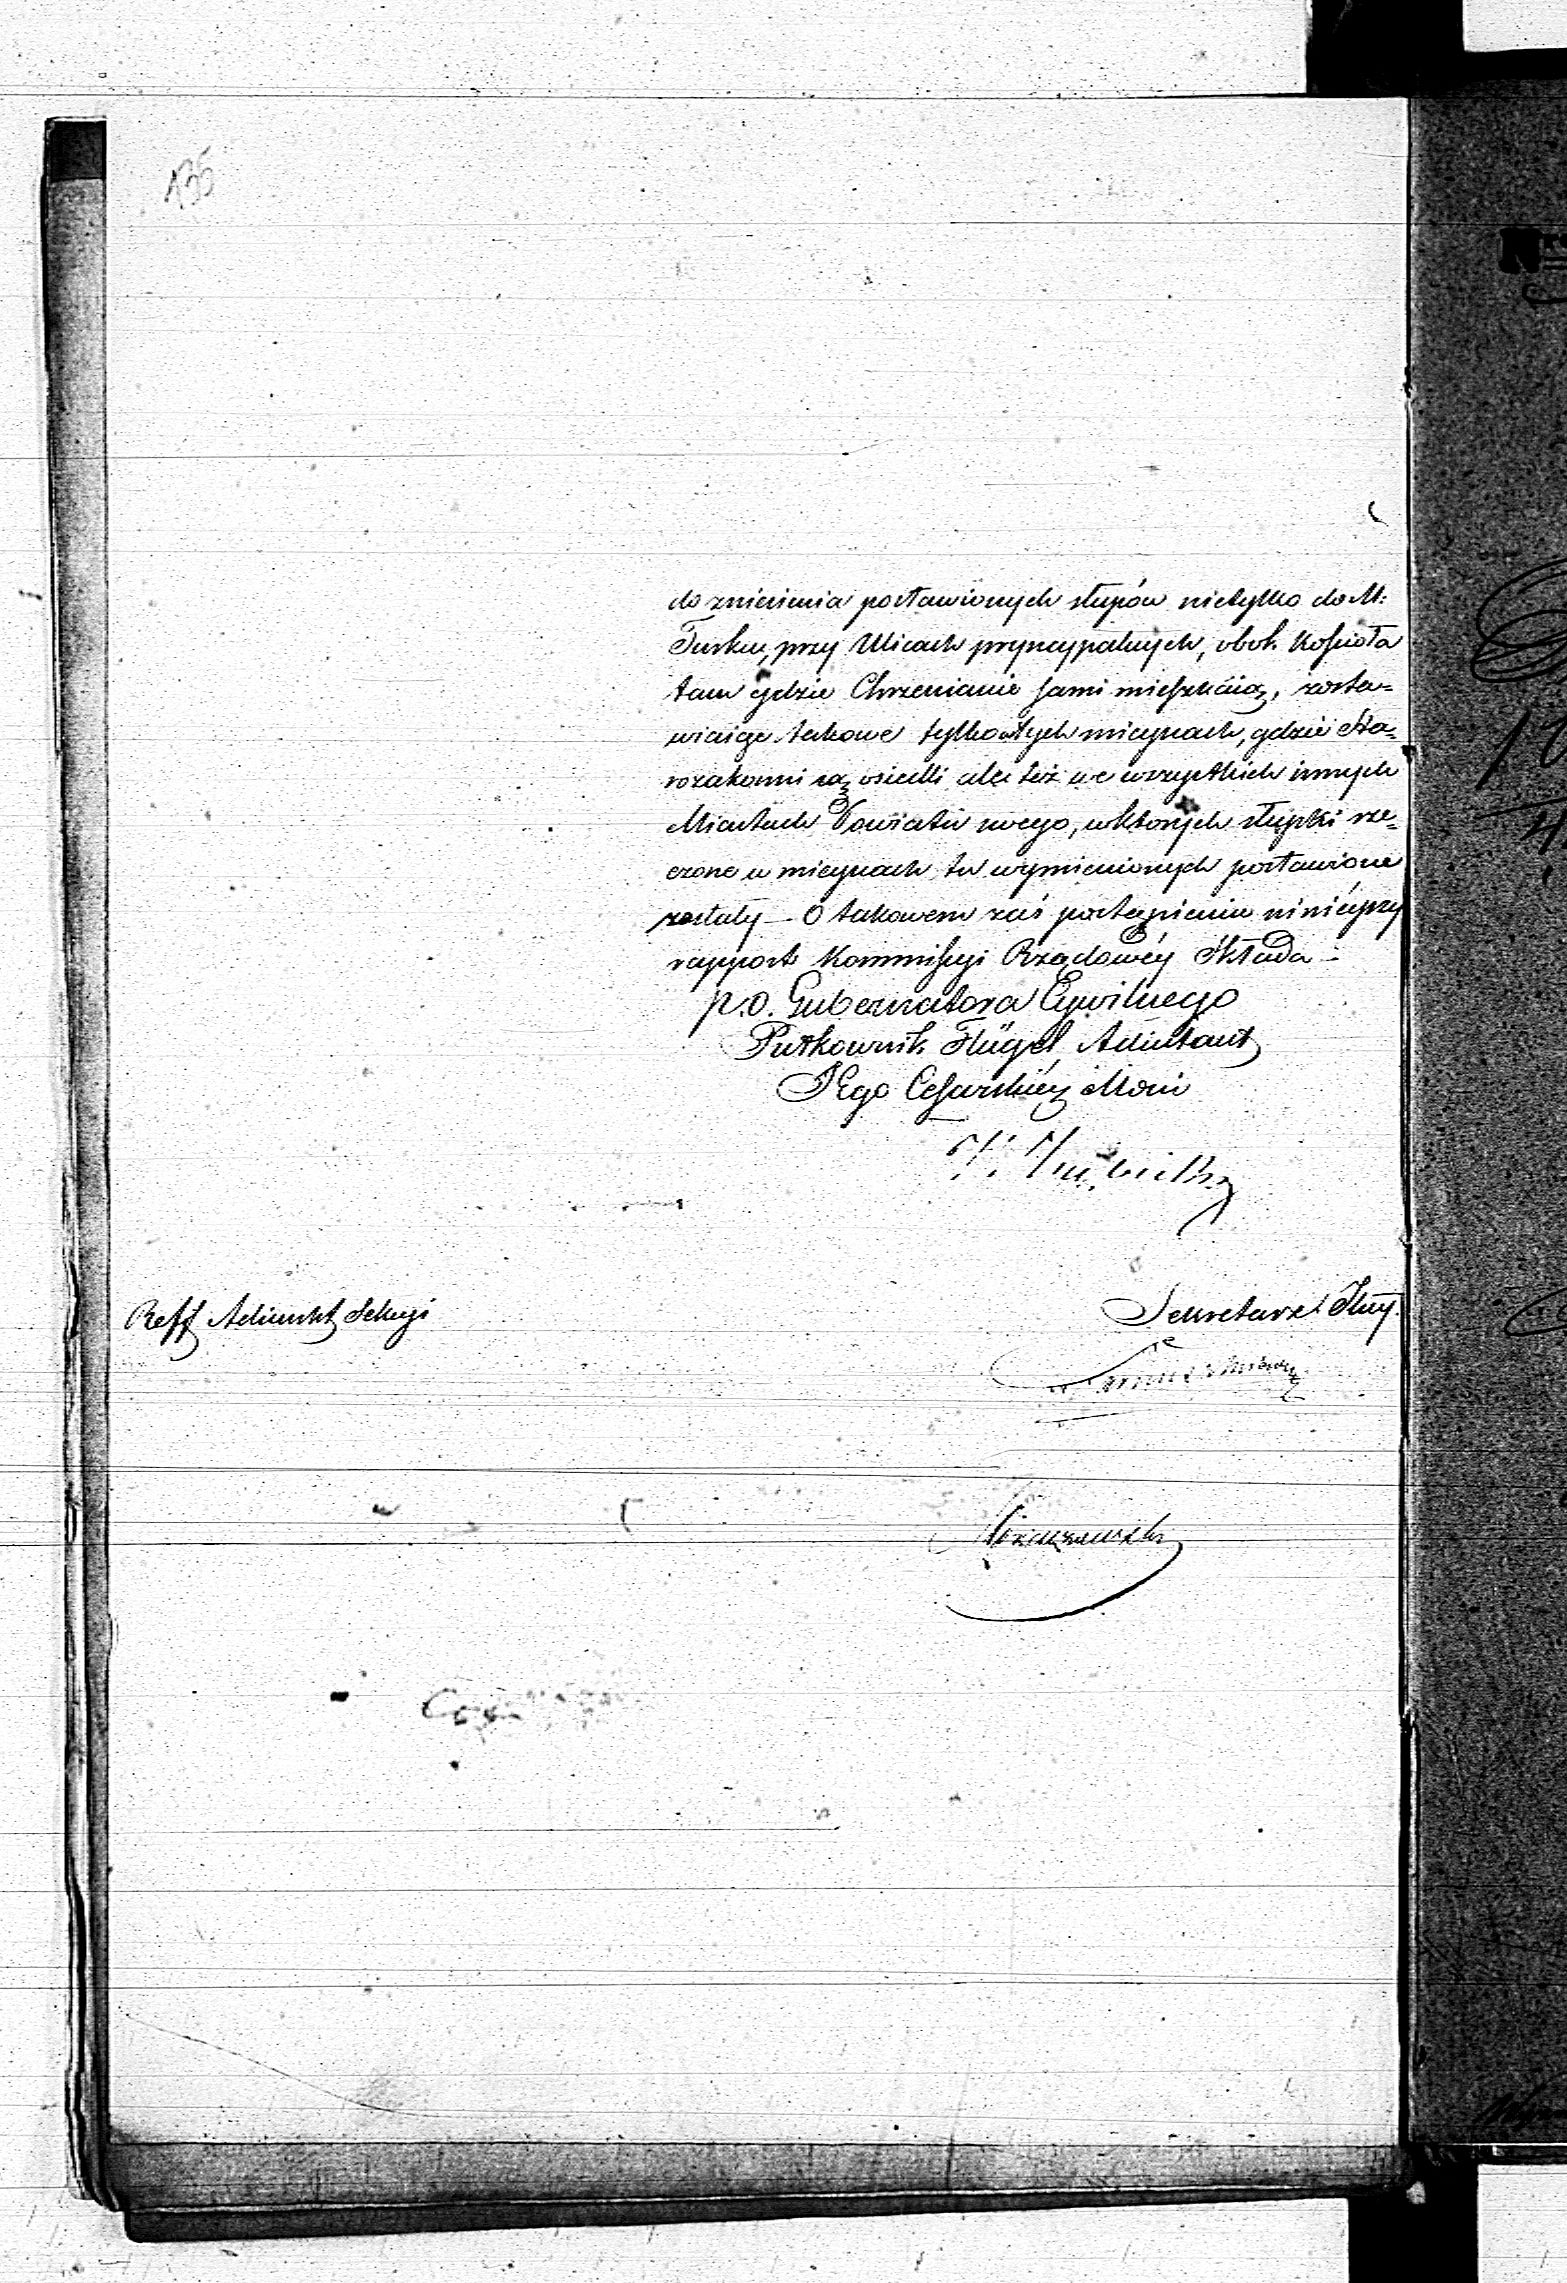 135
do zniesienia postawionych słupów nietylko do M:
Turku, przy Ulicach pryncypalnych, obok Kościoła
tam gdzie Chrzescianie sami mieszkáią, zosta=
wiaiąc takowe tylko w tych mieyscach, gdzie Sta=
rozakonni są osiedli ale też we wszystkich innych
Miastach Powiatu swego, w których słupki rze=
czone w mieyscach tu wymienionych postawione
zostały – O takowem zaś postąpieniu ninieyszy
rapport Kommissyi Rządowéy Składa –
p.o. Gubernatora Cywilnego
Pułkownik Flügel Adiutant
JEgo Cesarskiéy Mości
Reff Adiunkt Sekcyi
Sekretarz Jlny.